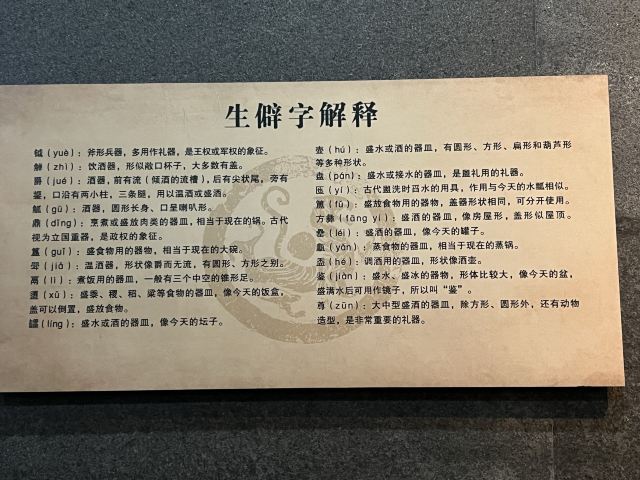 生僻字解释
钺（yuè）：斧形兵器，多用作礼器，是王权或军权的象征。
觯（zhì）：饮酒器，形似敞口杯子，大多数有盖。
爵（jué）：酒器，前有流（倾酒的流槽），后有尖状尾，旁有
鋬，口沿有两小柱，三条腿，用以温酒或盛酒。
觚（gū）：酒器，圆形长身、口呈喇叭形。
鼎（dǐng）：烹煮或盛放肉类的器皿，相当于现在的锅。古代
视为立国重器，是政权的象征。
簋（guǐ）：盛食物用的器物，相当于现在的大碗。
斝（jiǎ）：温酒器，形状像爵而无流，有圆形、方形之别。
鬲（lì）：煮饭用的器皿，一般有三个中空的锥形足。
盨（xǔ）：盛黍、稷、稻、粱等食物的器皿，像今天的饭盒，
盖可以倒置，盛放食物。
（líng）：盛水或酒的器皿，像今天的坛子。
壶（hú）：盛水或酒的器皿，有圆形、方形、扁形和葫芦形
等多种形状。
盘（pán）：盛水或接水的器皿，是盥礼用的礼器。
匜（yí）：古代盥洗时舀水的用具，作用与今天的水瓢相似。
簠（fǔ）：盛放食物用的器物，盖器形状相同，可分开使用。
方彝（fāng yí）：盛酒的器皿，像房屋形，盖形似屋顶。
罍（léi）：盛酒的器皿，像今天的罐子。
甗（yǎn）：蒸食物的器皿，相当于现在的蒸锅。
盉（hé）：调酒用的器皿，形状像酒壶。
鉴（jiàn）：盛水、盛冰的器物，形体比较大，像今天的盆，
盛满水后可用作镜子，所以叫“鉴”。
尊（zūn）：大中型盛酒的器皿，除方形、圆形外，还有动物
造型，是非常重要的礼器。